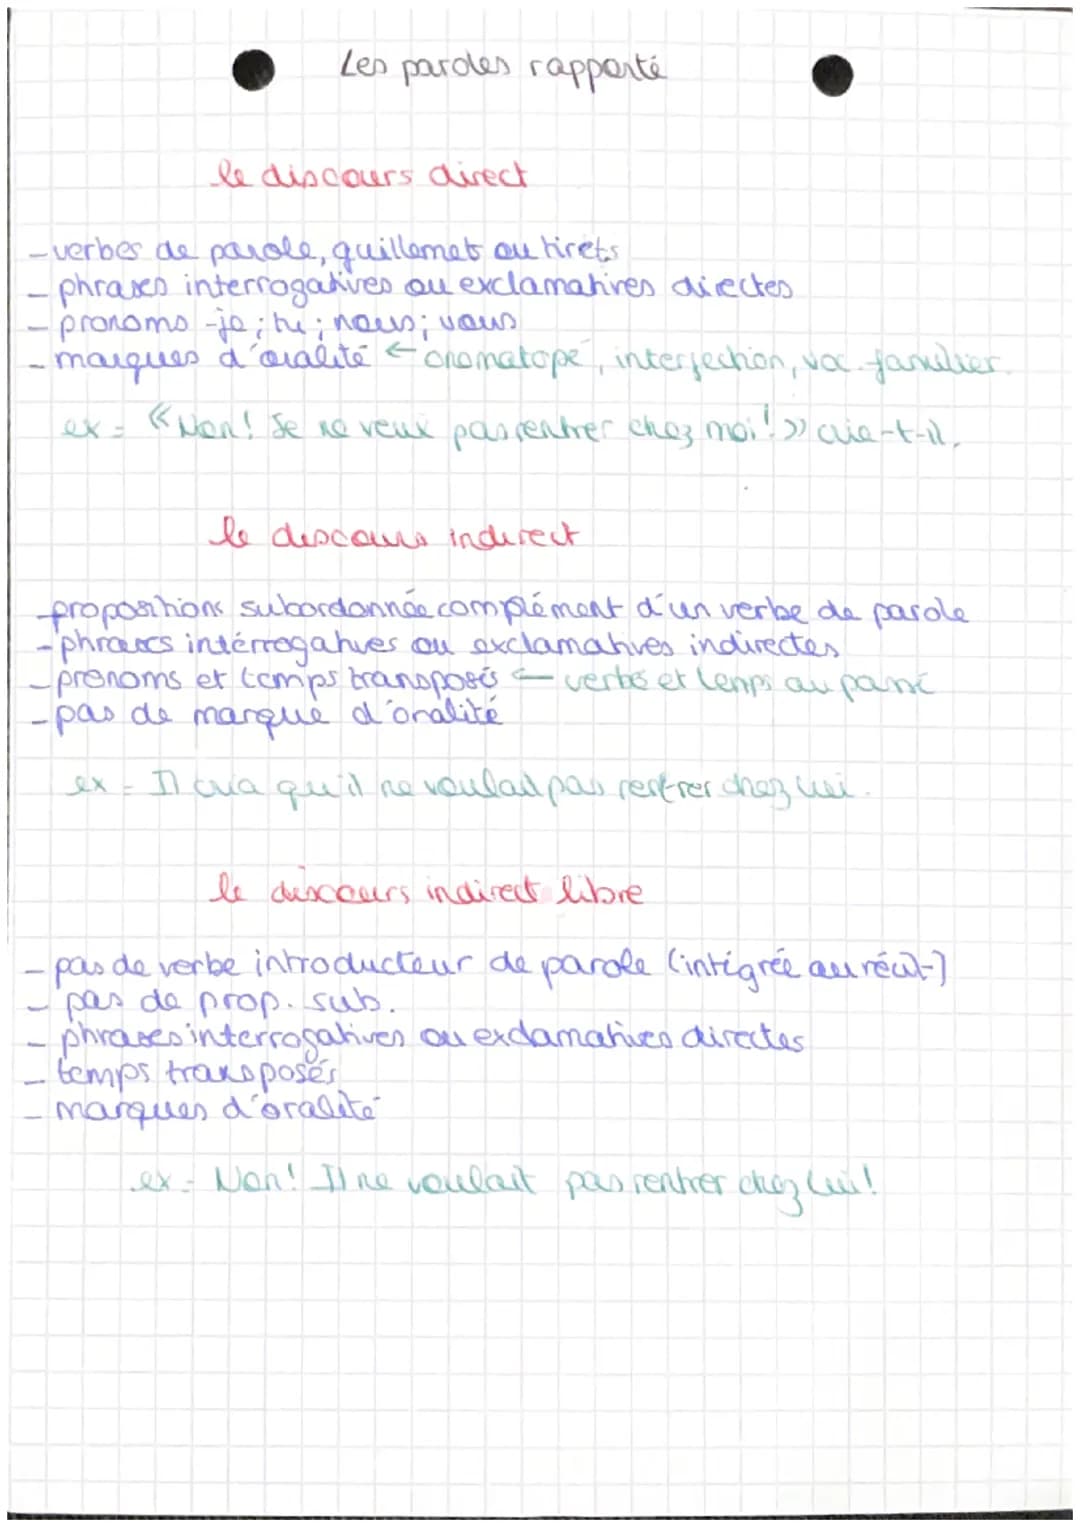 Les paroles rapporté
le discours direct
- verbes de parole, guillemet ou tirets
- phrases interrogatives ou exclamatives directes
- pronoms - je ; tu ; nous ; vous
- marques d'oralité ← onomatopé, interjection, voc. familier.
ex = « Non ! Je ne veux pas rentrer chez moi ! » crie-t-il.
le discours indirect
- propositions subordonnée complément d'un verbe de parole
- phrases intérrogatives ou exclamatives indirectes
- pronoms et temps transposés ← verbe et temps au passé
- pas de marque d'oralité
ex = Il cria qu'il ne voulait pas rentrer chez lui.
le discours indirect libre
- pas de verbe introducteur de parole (intégrée au récit)
- pas de prop. sub.
- phrases interrogatives ou exclamatives directes
- temps transposés
- marques d'oralité
ex = Non ! Il ne voulait pas rentrer chez lui !